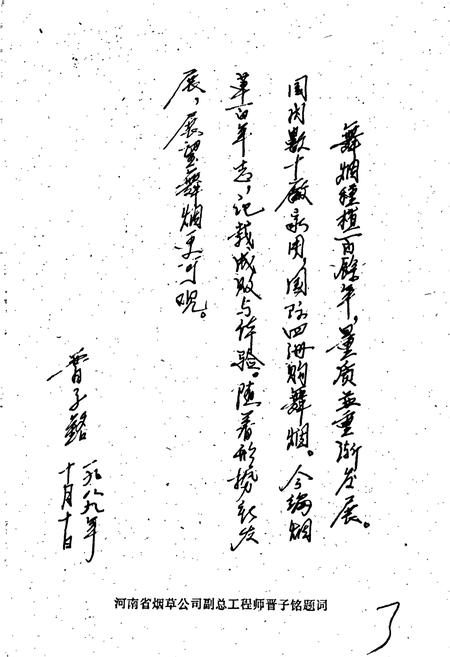 舞烟種植一百餘年，量质并重渐发展。
国内数十厰家用，国际四海购舞烟。今编烟
草百年志，记载成败与体验。随着形势新发
展，展望舞烟更可观。
晋子铭
一九八九年
十月十日
河南省烟草公司副总工程师晋子铭题词